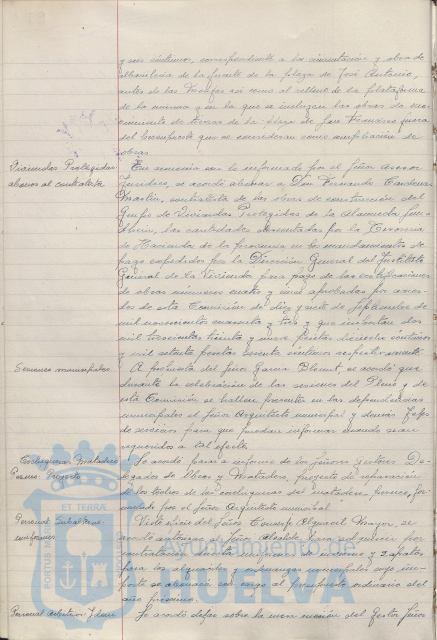 y seis céntimos, correspondiente a la cimentación y obra de
albañilería de la fuente de la plaza de José Antonio,
antes de las Monjas así como al relleno de la plataforma
de la misma y en la que se incluyen las obras de mo-
vimiento de tierras de la plaza de San Francisco fuera
del presupuesto que se consideran como ampliación de
obras.
Viviendas Protegidas
abonos al contratista
En armonía con lo informado por el Señor Asesor
Jurídico, se acordó abonar a Don Fernando
Martín, contratista de las obras de construcción del
Grupo de Viviendas Protegidas de la Alameda
las cantidades por la Tesorería
de Hacienda de la provincia en los mandamientos de
pago expedidos por la Dirección General del Instituto
General de la Vivienda para pago de las certificaciones
de obras números cuatro y cinco aprobadas por acuer-
do de esta Comisión de diez y siete de Septiembre de
mil novecientos cuarenta y tres y que importan dos
mil trescientas treinta y nueve pesetas dieciocho céntimos
y mil setenta pesetas sesenta céntimos respectivamente.
Servicios municipales
A propuesta del Señor García se acordó que
durante la celebración de las sesiones del Pleno y de
esta Comisión se hallen presentes en las dependencias
municipales el Señor Arquitecto municipal y demás Jefes
de servicios para que puedan informar cuando sean
requeridos a tal efecto.
Matadero
Proyecto
Se acordó pasar a informe de los Señores Gestores De-
legados de Obras y Matadero, proyecto de reparación
de los techos de las del matadero for-
mulado por el Señor Arquitecto municipal.
Personal Subalterno
uniformes
Visto oficio del Señor Conserje Alguacil Mayor, se
acordó autorizar al Señor Alcalde para adquirir por
y zapatos
para los alguaciles y ordenanzas municipales cuyo im-
porte se abonará con cargo al presupuesto ordinario del
año próximo.
Personal
Se acordó dejar sobre la mesa moción del Gestor Señor
PORTUS MARIS ET TERRAE
Ayuntamiento de
HUELVA